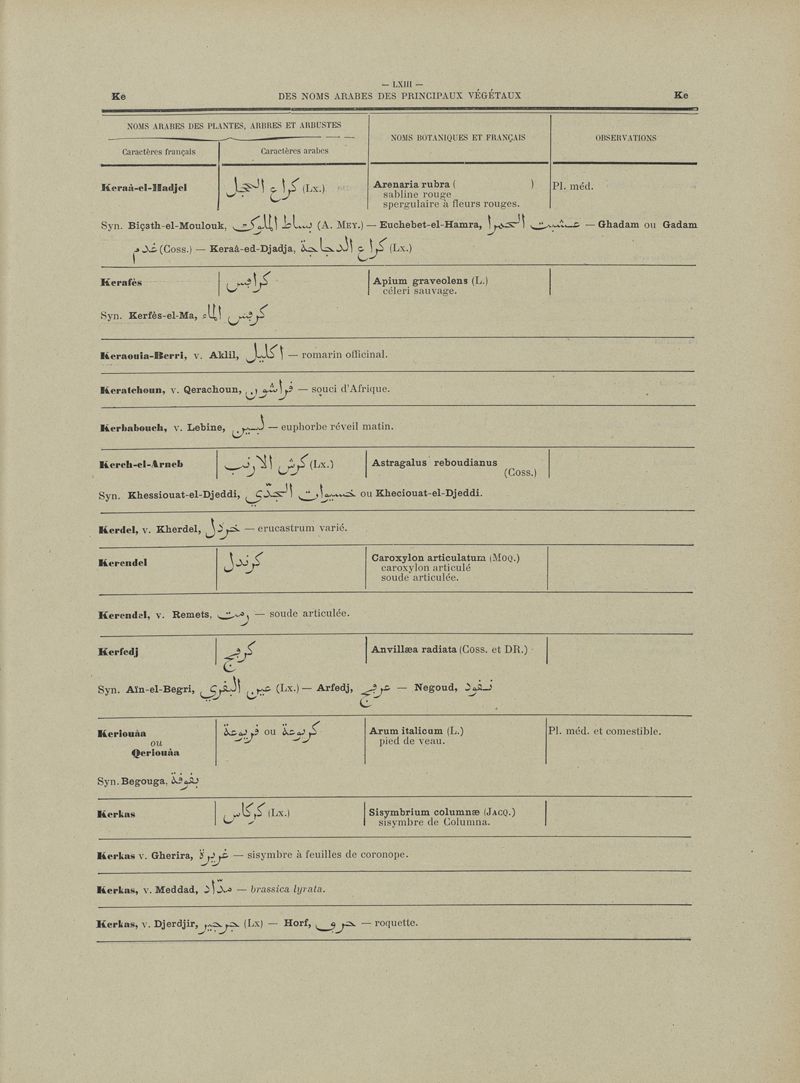 — LXIII —
Ke DES NOMS ARABES DES PRINCIPAUX VÉGÉTAUX Ke
NOMS ARABES DES PLANTES, ARBRES ET ARBUSTES
NOMS BOTANIQUES ET FRANÇAIS
OBSERVATIONS
Caractères français Caractères arabes
Keraà-el-Hadjel كراع الحجل (Lx.) Arenaria rubra ( ) Pl. méd.
sabline rouge
spergulaire à fleurs rouges.
Syn. Biçath-el-Moulouk, بساط الملوك (A. Mey.) — Euchebet-el-Hamra, عشيبت الحمرا — Ghadam ou Gadam
غدام (Coss.) — Keraà-ed-Djadja, كراع الدجاجة (Lx.)
Kerafès كرافس Apium graveolens (L.)
céleri sauvage.
Syn. Kerfès-el-Ma, كرفس الماء
Keraouia-Berri, v. Aklil, اكليل — romarin officinal.
Keratchoun, v. Qerachoun, — souci d'Afrique.
Kerbabouch, v. Lebine, لبين — euphorbe réveil matin.
Kerch-el-Arneb كرش الارنب (Lx.) Astragalus reboudianus
(Coss.)
Syn. Khessiouat-el-Djeddi, الجدي ou Kheciouat-el-Djeddi.
Kerdel, v. Kherdel, خردل — erucastrum varié.
Kerendel كرندل Caroxylon articulatum (Moq.)
caroxylon articulé
soude articulée.
Kerendel, v. Remets, رمث — soude articulée.
Kerfedj كرفج Anvillæa radiata (Coss. et DR.)
Syn. Aïn-el-Begri, عين البقري (Lx.) — Arfedj, عرفج — Negoud, نقود
Keriouàa ڧريوعة ou كريوعة Arum italicum (L.) Pl. méd. et comestible.
ou pied de veau.
Qeriouàa
Syn. Begouga, بقوقة
Kerkas كركاس (Lx.) Sisymbrium columnæ (Jacq.)
sisymbre de Columna.
Kerkas v. Gherira, غريرة — sisymbre à feuilles de coronope.
Kerkas, v. Meddad, مداد — brassica lyrata.
Kerkas, v. Djerdjir, جرجير (Lx) — Horf, حرف — roquette.